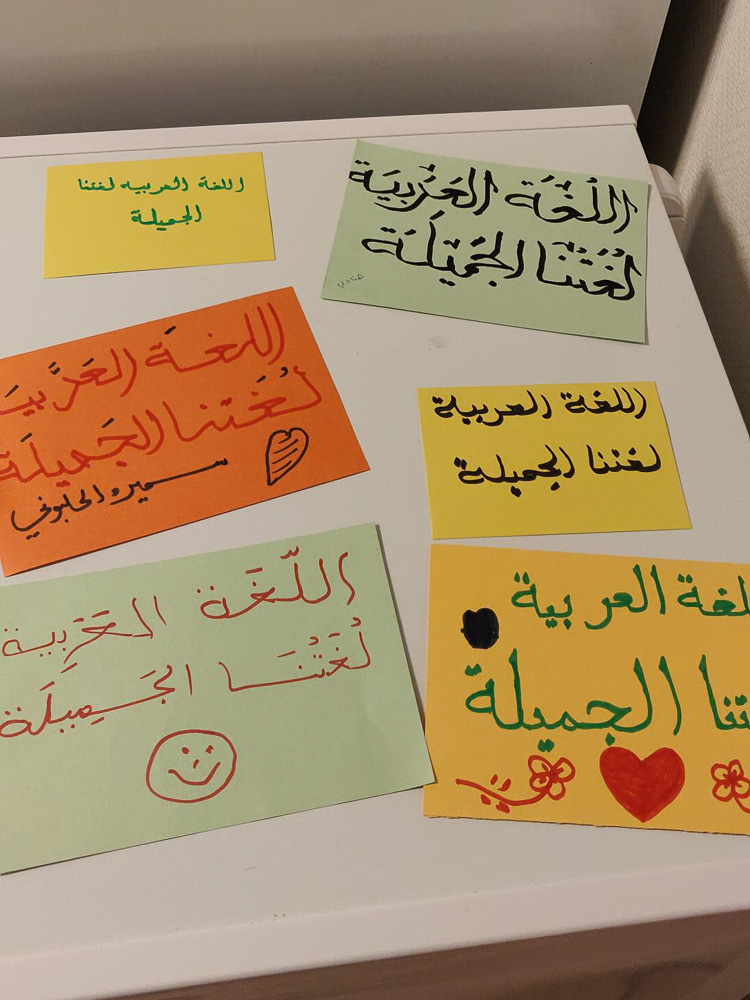 اللغة العربيه لغتنا
الجميلة
اللُغَة العَرَبيَة
لُغَتُنَا الجَميلَة
هنادي
اللغَة العَرَبيَة
لُغَتنا الجَميلَة
سميره الحلبوني
اللغة العربية
لغتنا الجميلة
اللّغَة العَرَبية
لُغَتُنَا الجَمِيلَة
لغة العربية
تنا الجميلة